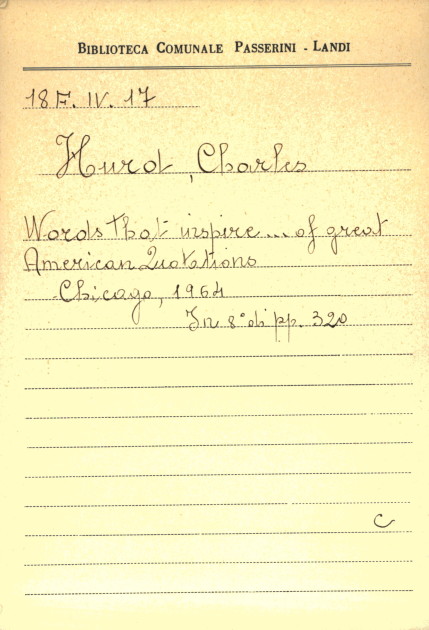 BIBLIOTECA COMUNALE PASSERINI - LANDI
18 F. IV. 17
Hurd, Charles
Words that inspire... of great
American Quotations
Chicago, 1964
In 8° di pp. 320
C